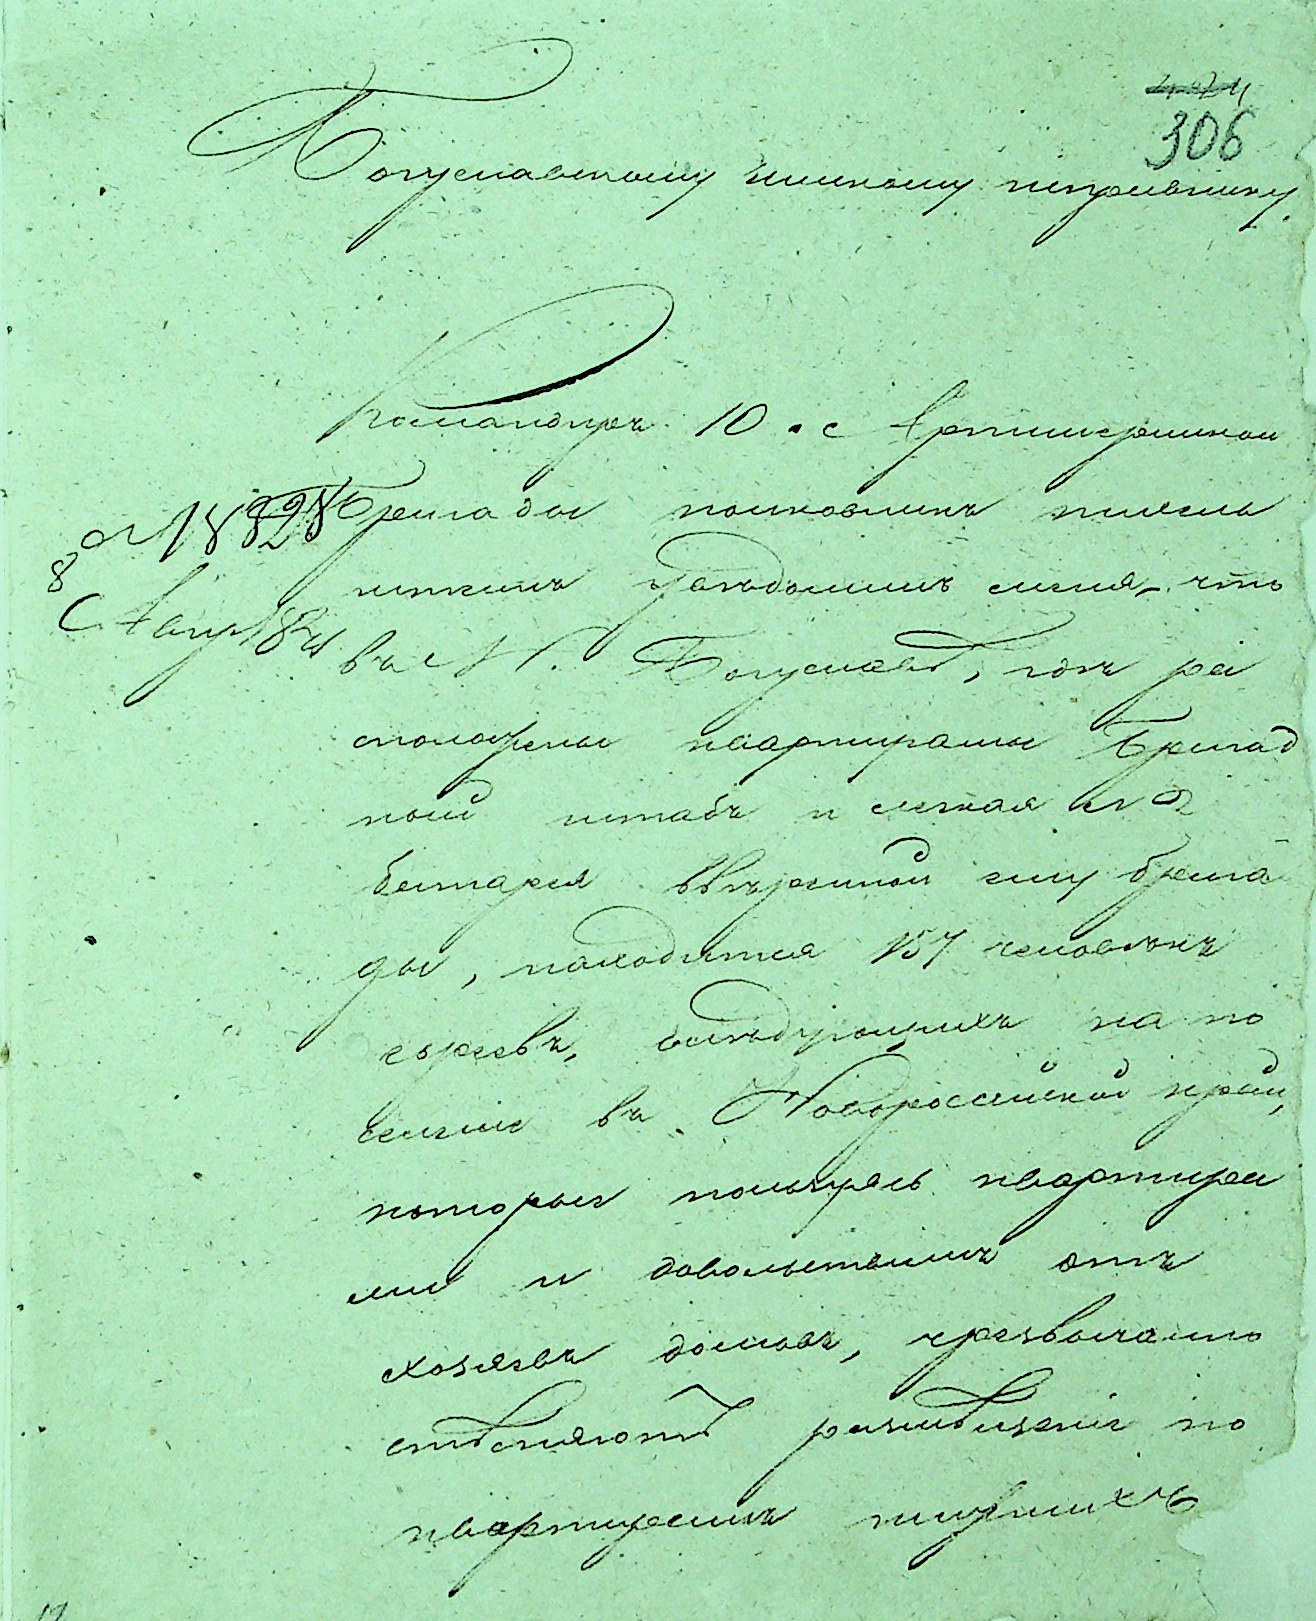 306
Богуславскому земскому исправнику
Командиръ 10.й Артиллерийской
№ 18828 Бригады полковникъ
уведомилъ меня, что
8 Авгу
въ М. Богуславѣ, гдѣ ра
сположены квартирами Бригад
ной штабъ и легкая № 2
батарея ввѣренной ему брига
ды, находится 157 человѣкъ
евреевъ, слѣдующихъ на по
селеніе въ Новороссийской край,
которые пользуясь квартира
ми и довольствіемъ отъ
хозяевъ домовъ, чрезвычайно
стѣсняютъ размѣщеніе по
квартирамъ нижнихъ